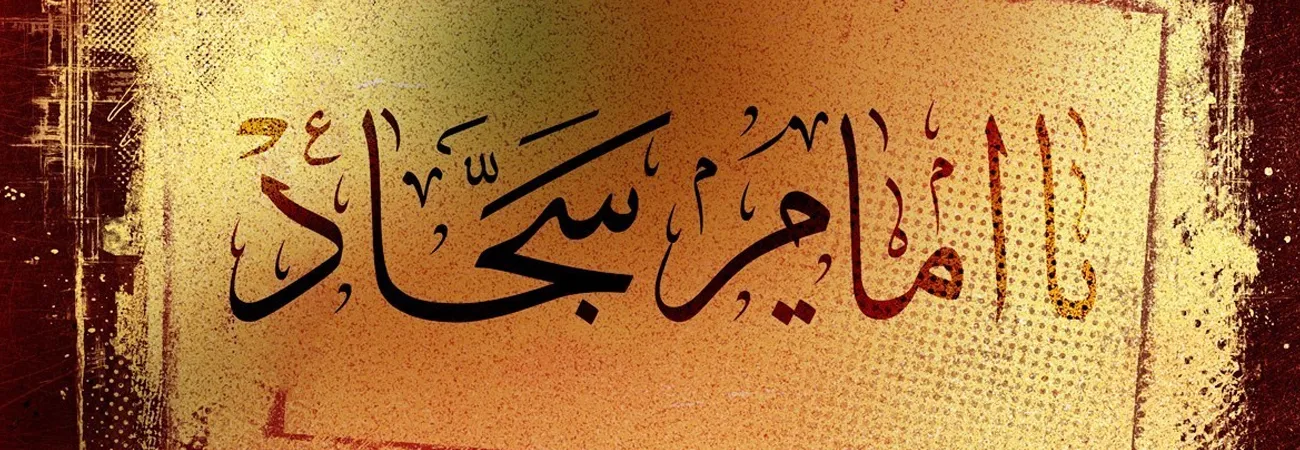 یا امام سجّاد ع